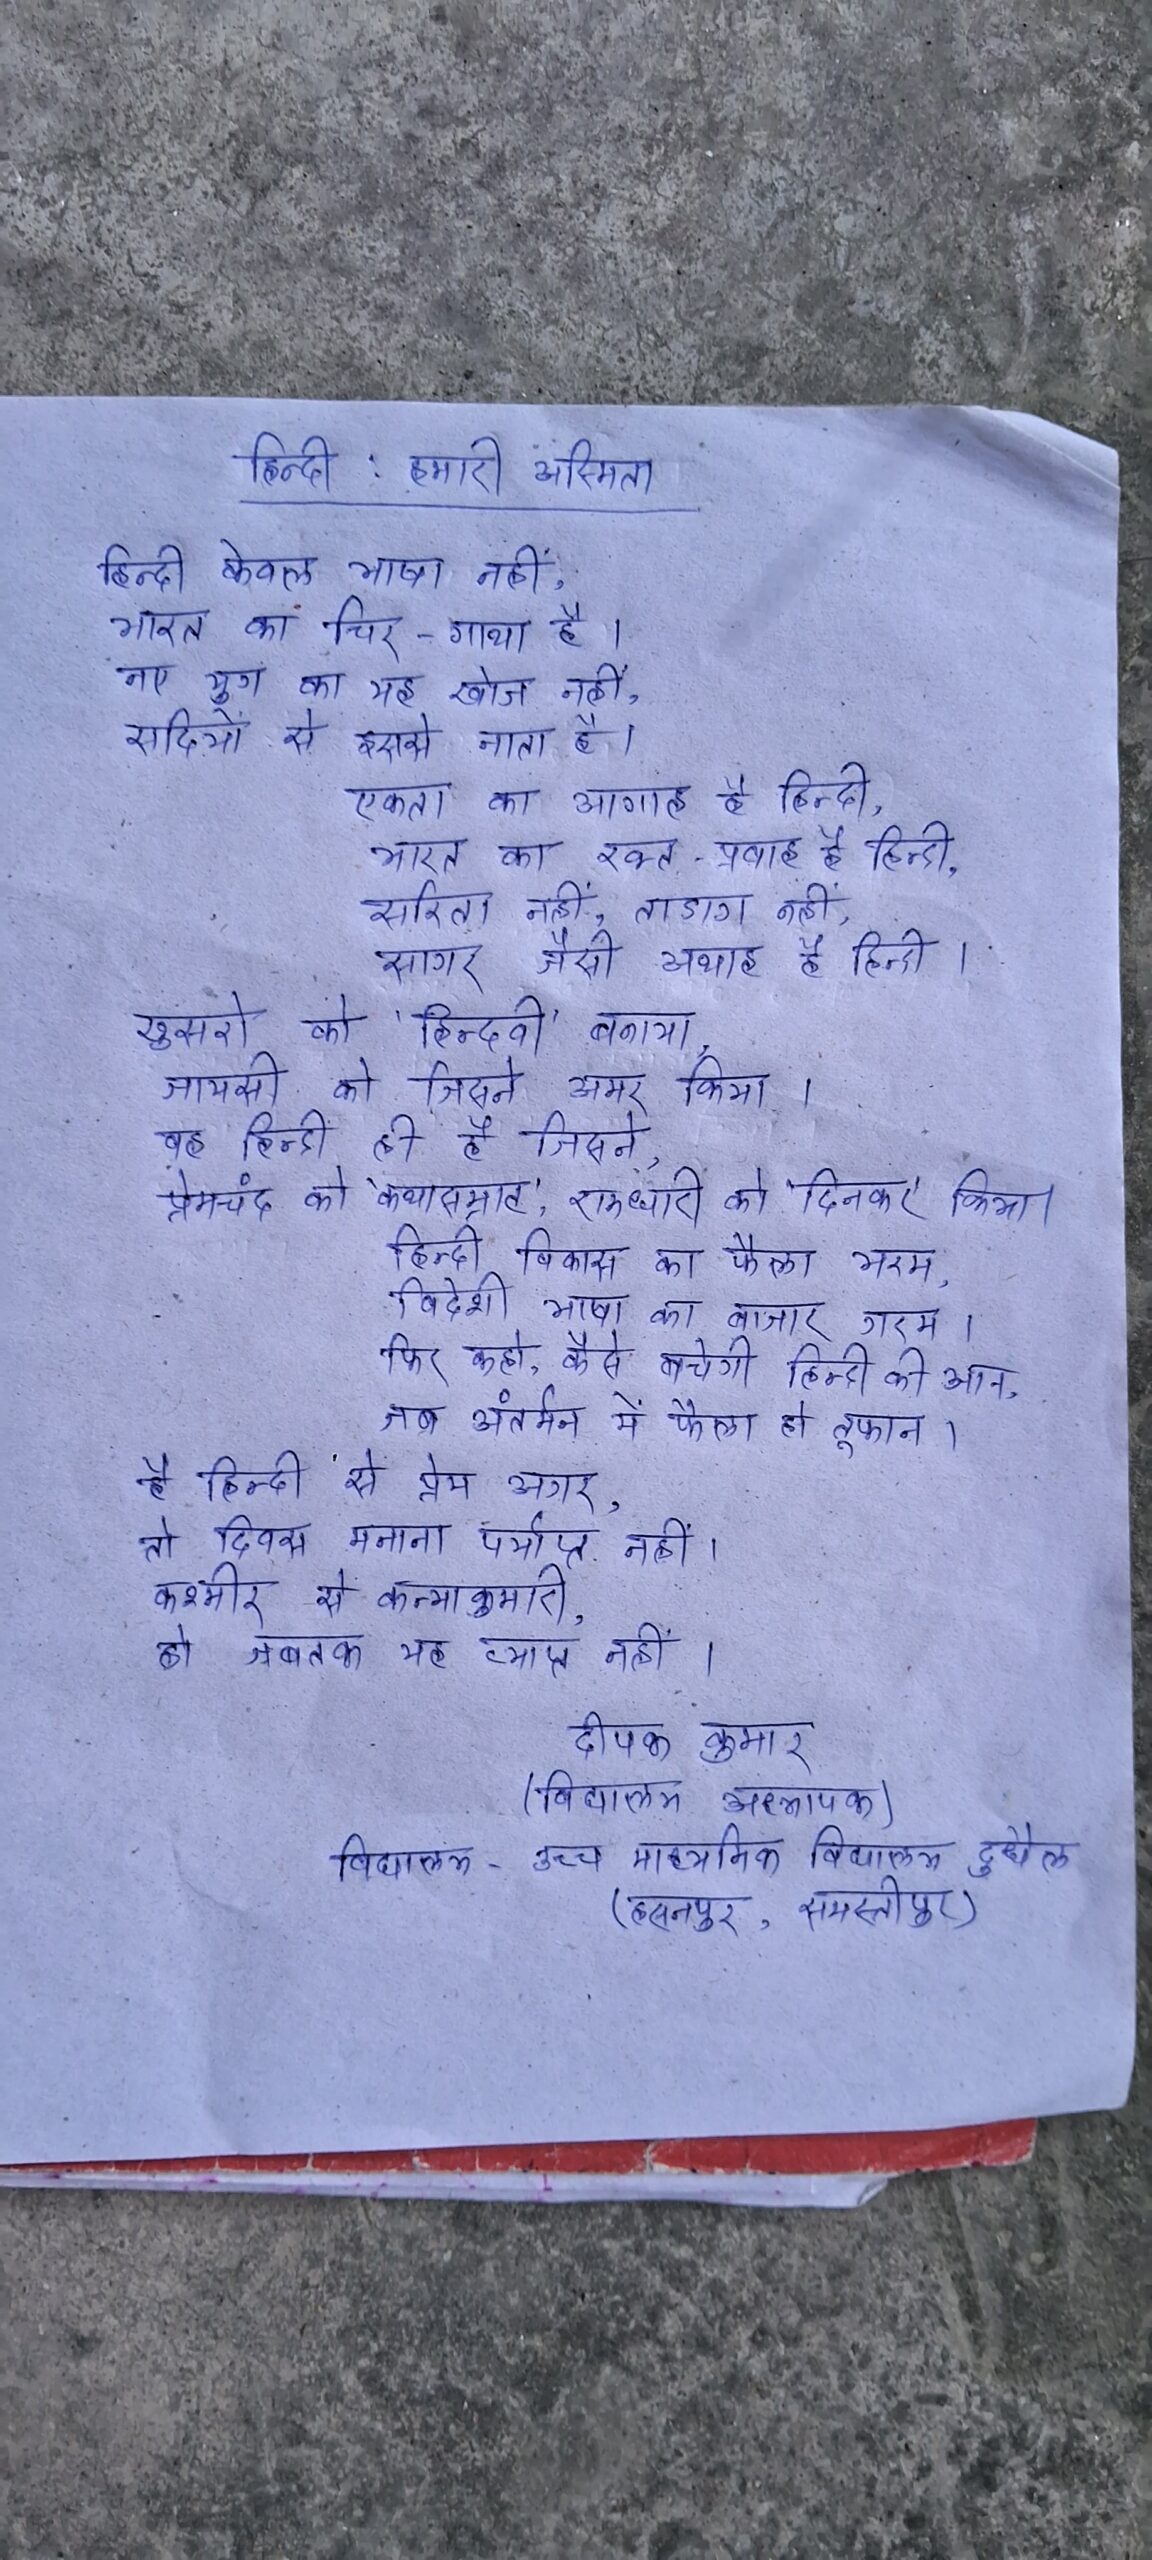 हिन्दी : हमारी अस्मिता
हिन्दी केवल भाषा नहीं,
भारत का चिर - गाथा है ।
नए युग का यह खोज नहीं,
सदियों से इससे नाता है ।
एकता का आगाह है हिन्दी,
भारत का रक्त - प्रवाह है हिन्दी,
सरिता नहीं, ताडाग नहीं,
सागर जैसी अथाह है हिन्दी ।
खुसरो को 'हिन्दवी' बनाया,
जायसी को जिसने अमर किया ।
वह हिन्दी ही है जिसने,
प्रेमचंद को 'कथासम्राट', रामधारी को 'दिनकर' किया ।
हिन्दी विकास का फैला भरम,
विदेशी भाषा का बाजार गरम ।
फिर कहो, कैसे बचेगी हिन्दी की आन,
जब अंतर्मन में फैला हो तूफान ।
है हिन्दी से प्रेम अगर,
तो दिवस मनाना पर्याप्त नहीं ।
कश्मीर से कन्याकुमारी,
हो जबतक यह व्याप्त नहीं ।
दीपक कुमार
(विद्यालय अध्यापक)
विद्यालय - उच्च माध्यमिक विद्यालय दुधैल
(हसनपुर, समस्तीपुर)